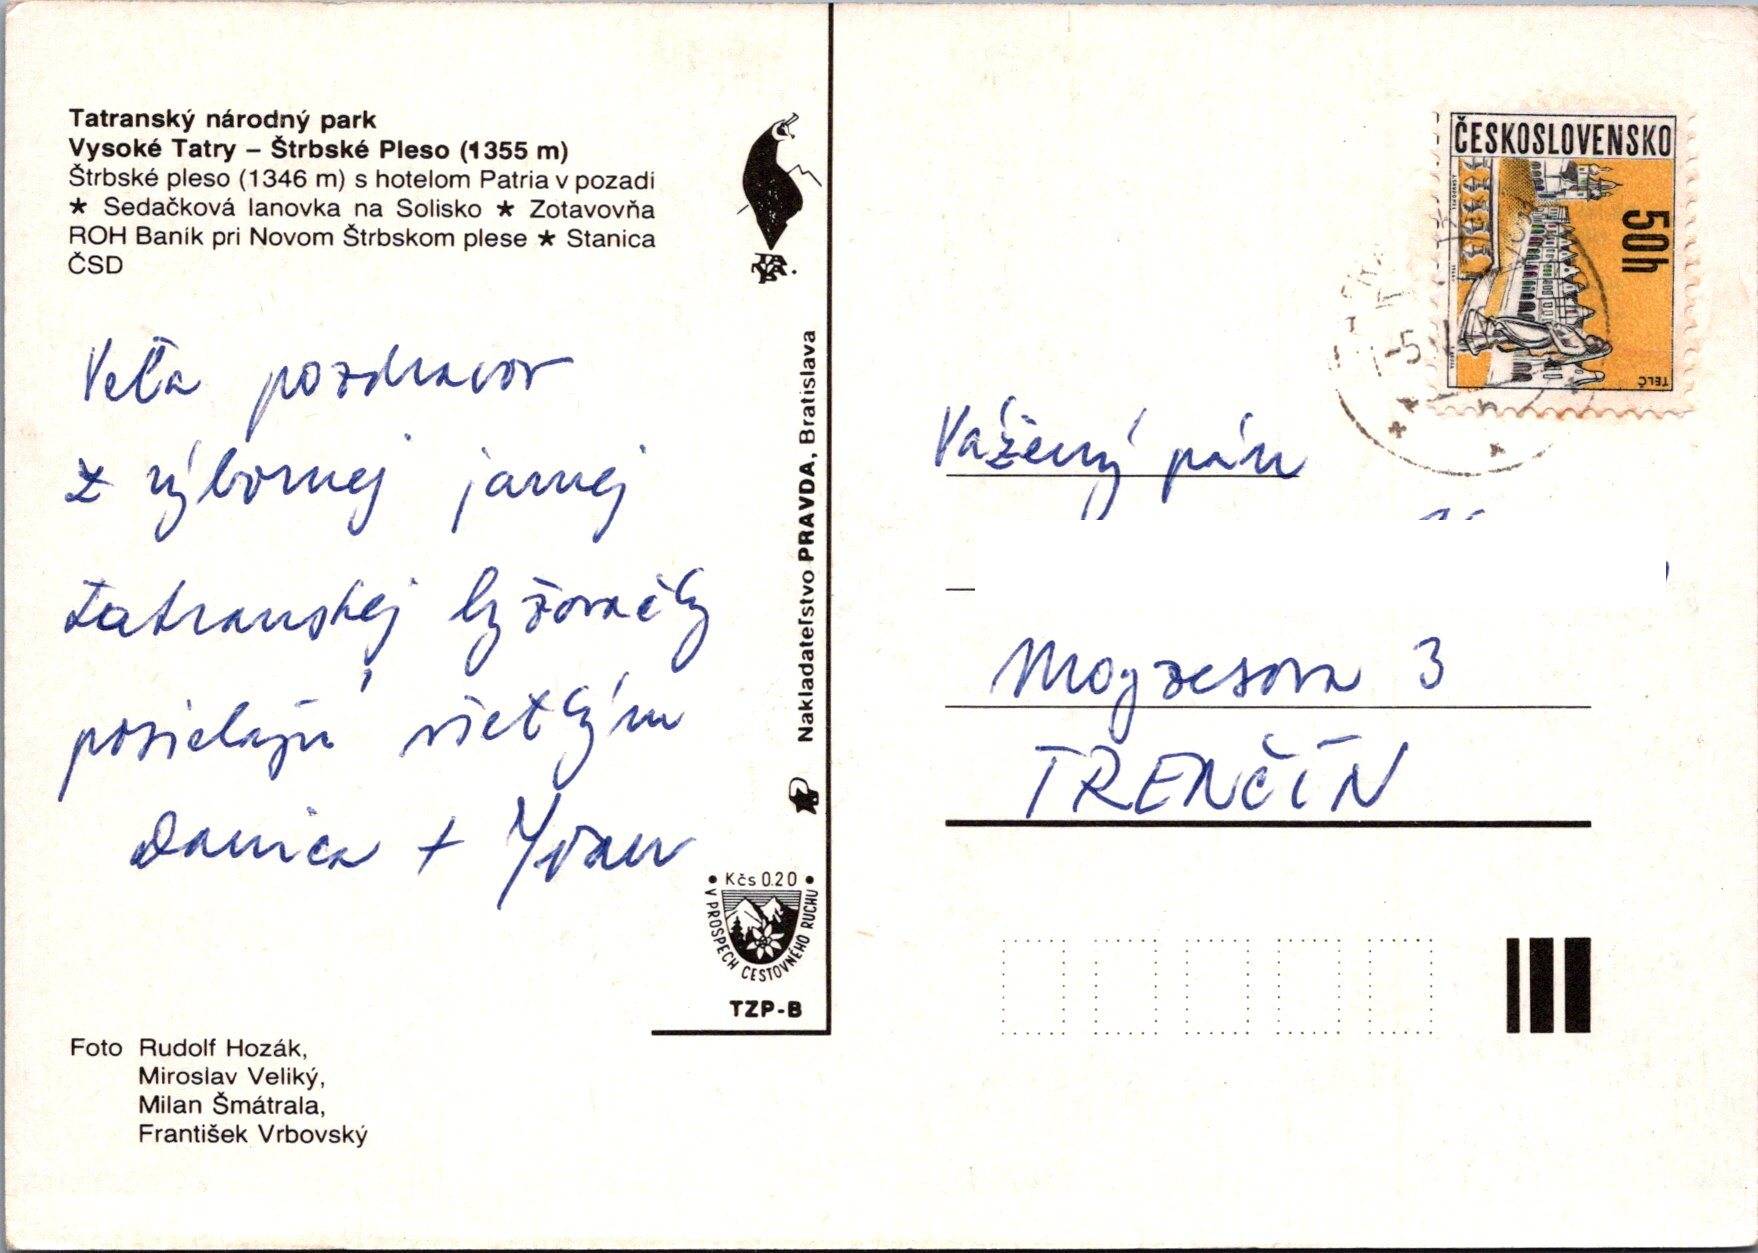 Tatranský národný park
Vysoké Tatry – Štrbské Pleso (1355 m)
Štrbské pleso (1346 m) s hotelom Patria v pozadí
★ Sedačková lanovka na Solisko ★ Zotavovňa
ROH Baník pri Novom Štrbskom plese ★ Stanica
ČSD
Veľa pozdravov
z výbornej jarnej
tatranskej lyžovačky
posielajú všetkým
Danica + Ivan
Foto Rudolf Hozák,
Miroslav Veliký,
Milan Šmátrala,
František Vrbovský
Nakladateľstvo PRAVDA, Bratislava
• Kčs 0.20 •
V PROSPECH CESTOVNÉHO RUCHU
TZP-B
ČESKOSLOVENSKO
50h
TELČ
-5
Vážený pán
Moyzesova 3
TRENČÍN